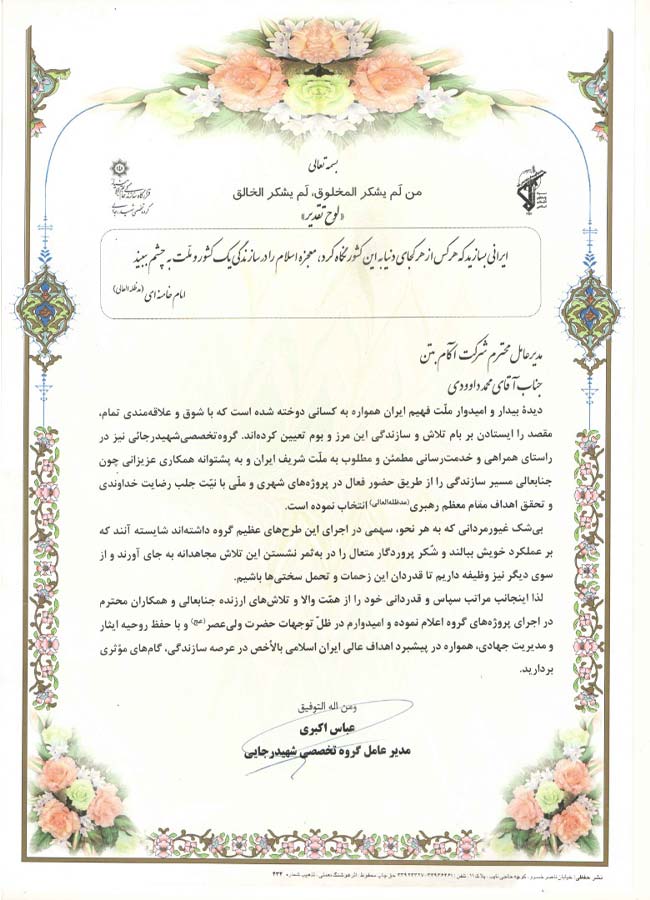 بسمه تعالی
من لَم یشکر المخلوق، لَم یشکر الخالق
«لوح تقدیر»
ایرانی بسازید که هر کس از هر کجای دنیا به این کشور نگاه کرد، معجزه اسلام را در سازندگی یک کشور و ملّت به چشم ببیند
امام خامنه ای (مدظله العالی)
مدیرعامل محترم شرکت آکام بتن
جناب آقای محمد داوودی
دیدهٔ بیدار و امیدوار ملّت فهیم ایران همواره به کسانی دوخته شده است که با شوق و علاقه‌مندی تمام،
مقصد را ایستادن بر بام تلاش و سازندگی این مرز و بوم تعیین کرده‌اند. گروه تخصصی شهیدرجائی نیز در
راستای همراهی و خدمت‌رسانی مطمئن و مطلوب به ملّت شریف ایران و به پشتوانه همکاری عزیزانی چون
جنابعالی مسیر سازندگی را از طریق حضور فعال در پروژه‌های شهری و ملّی با نیّت جلب رضایت خداوندی
و تحقق اهداف مقام معظم رهبری(مدظله‌العالی) انتخاب نموده است.
بی‌شک غیورمردانی که به هر نحو، سهمی در اجرای این طرح‌های عظیم گروه داشته‌اند شایسته آنند که
بر عملکرد خویش ببالند و شُکر پروردگار متعال را در به‌ثمر نشستن این تلاش مجاهدانه به جای آورند و از
سوی دیگر نیز وظیفه داریم تا قدردان این زحمات و تحمل سختی‌ها باشیم.
لذا اینجانب مراتب سپاس و قدردانی خود را از همّت والا و تلاش‌های ارزنده جنابعالی و همکاران محترم
در اجرای پروژه‌های گروه اعلام نموده و امیدوارم در ظلّ توجهات حضرت ولی‌عصر (عج) و با حفظ روحیه ایثار
و مدیریت جهادی، همواره در پیشبرد اهداف عالی ایران اسلامی بالأخص در عرصه سازندگی، گام‌های مؤثری
بردارید.
ومن اله التوفیق
عباس اکبری
مدیر عامل گروه تخصصی شهیدرجایی
نشر حفظی: خیابان ناصر خسرو، کوچه حاجی نایب، پلاک ۱۱، تلفن: ۳۳۹۳۶۲۶۱-۳۳۹۲۳۳۲۷ حق چاپ محفوظ، اثر هوشنگ نعمتی، تذهیب شماره ۴۳۲